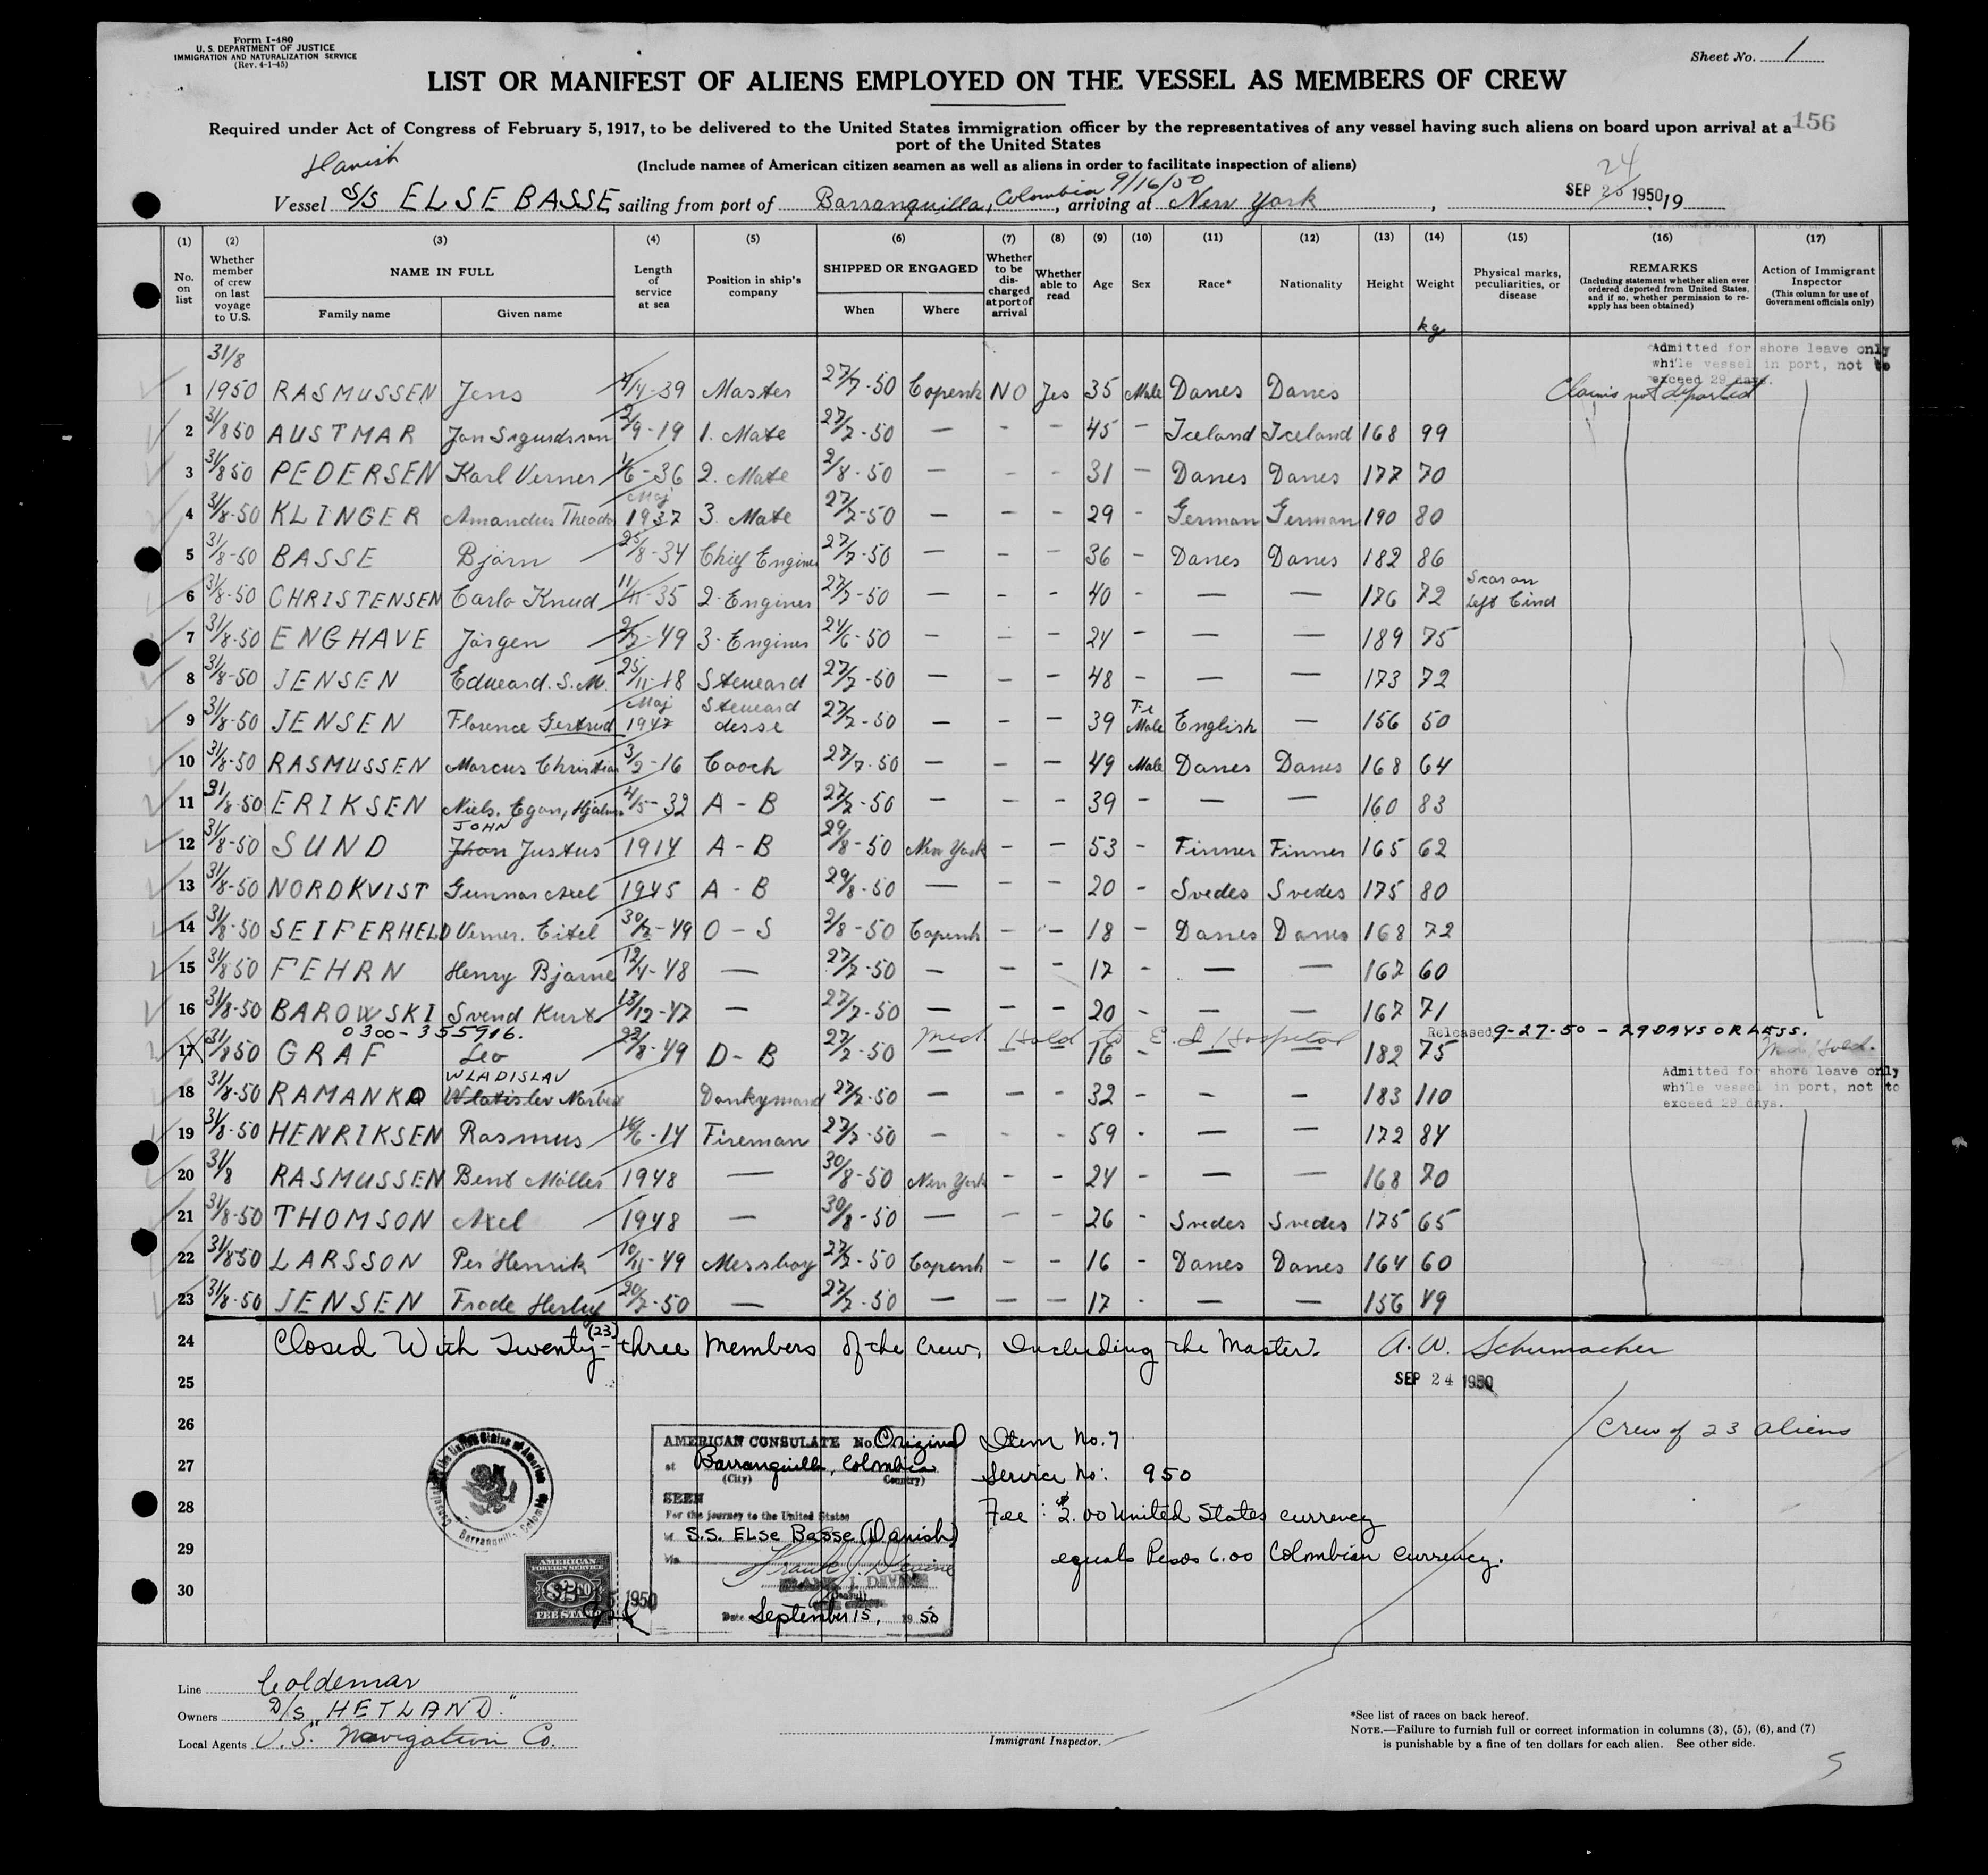 Form I-480
U. S. DEPARTMENT OF JUSTICE
IMMIGRATION AND NATURALIZATION SERVICE
(Rev. 4-1-45)
Sheet No. 1
LIST OR MANIFEST OF ALIENS EMPLOYED ON THE VESSEL AS MEMBERS OF CREW
156
Required under Act of Congress of February 5, 1917, to be delivered to the United States immigration officer by the representatives of any vessel having such aliens on board upon arrival at a
port of the United States
(Include names of American citizen seamen as well as aliens in order to facilitate inspection of aliens)
Vessel S/S ELSE BASSE sailing from port of Barranquilla, Colombia 9/16/50, arriving at New York, SEP 24 1950, 19
(1) (2) (3) (4) (5) (6) (7) (8) (9) (10) (11) (12) (13) (14) (15) (16) (17)
No. on list
Whether member of crew on last voyage to U.S.
NAME IN FULL
Family name
Given name
Length of service at sea
Position in ship's company
SHIPPED OR ENGAGED
When
Where
Whether to be discharged at port of arrival
Whether able to read
Age
Sex
Race*
Nationality
Height
Weight
kg
Physical marks, peculiarities, or disease
REMARKS
(Including statement whether alien ever ordered deported from United States, and if so, whether permission to reapply has been obtained)
Action of Immigrant Inspector
(This column for use of Government officials only)
Admitted for shore leave only
while vessel in port, not to
exceed 29 days.
1 31/8 1950 RASMUSSEN Jens 4/4-39 Master 27/7-50 Copenh NO Jes 35 Male Danes Danes Claims not deported
2 31/8 50 AUSTMAR Jon Sigurdsson 2/9-19 1. Mate 27/7-50 — - - 45 - Iceland Iceland 168 99
3 31/8 50 PEDERSEN Karl Verner 1/6-36 2. Mate 2/8-50 — - - 31 - Danes Danes 177 70
4 31/8-50 KLINGER Amandus Theodo Maj 1937 3. Mate 27/7-50 — - - 29 - German German 190 80
5 31/8-50 BASSE Bjørn 25/8-34 Chief Engine 27/7-50 — - - 36 - Danes Danes 182 86
6 31/8-50 CHRISTENSEN Carlo Knud 11/11-35 2. Enginer 27/7-50 — - - 40 - — — 176 72 Scar on Left Cind
7 31/8-50 ENGHAVE Jørgen 2/7-49 3. Enginer 24/6-50 — - - 24 - — — 189 75
8 31/8-50 JENSEN Edward. S. M. 25/11-18 Steward 27/7-50 — - - 48 - — — 173 72
9 31/8-50 JENSEN Florence Gertrud Maj 1947 Steward desse 27/7-50 — - - 39 Fe Male English — 156 50
10 31/8-50 RASMUSSEN Marcus Christian 3/2-16 Cooch 27/7-50 — - - 49 Male Danes Danes 168 64
11 31/8-50 ERIKSEN Niels. Egon, Hjalmer 4/5-32 A-B 27/7-50 — - - 39 - — — 160 83
12 31/8-50 SUND JOHN Jhon Justus 1914 A-B 29/8-50 New York - - 53 - Finner Finner 165 62
13 31/8-50 NORDKVIST Gunnar Axel 1945 A-B 29/8-50 — - - 20 - Svedes Svedes 175 80
14 31/8-50 SEIFERHELD Verner. Eitel 30/7-49 O-S 2/8-50 Copenh - - 18 - Danes Danes 168 72
15 31/8 50 FEHRN Henry Bjarne 12/4-48 — 27/7-50 — - - 17 - — — 167 60
16 31/8-50 BAROWSKI Svend Kurt 13/12-47 — 27/7-50 — - - 20 - — — 167 71
0300-355916. Med. Hold to E. I Hospital Released 9-27-50 — 29 DAYS OR LESS.
17 31/8 50 GRAF Leo 22/8-49 D-B 27/7-50 — - - 16 - — — 182 75 Med Hold.
Admitted for shore leave only
while vessel in port, not to
exceed 29 days.
18 31/8-50 RAMANKO WLADISLAV Wlatislev Norbert Donkymand 27/7-50 — - - 32 - — — 183 110
19 31/8-50 HENRIKSEN Rasmus 16/6-14 Fireman 27/7-50 — - - 59 - — — 172 84
20 31/8 RASMUSSEN Bent Møller 1948 — 30/8-50 New York - - 24 - — — 168 70
21 31/8-50 THOMSON Axel 1948 — 30/8-50 — - - 26 - Svedes Svedes 175 65
22 31/8 50 LARSSON Per Henrik 10/11-49 Messboy 27/7-50 Copenh - - 16 - Danes Danes 164 60
23 31/8-50 JENSEN Frode Herluf 20/7-50 — 27/7-50 — - - 17 - — — 156 49
24 Closed With Twenty-three (23) Members of the Crew, Including the Master. A. W. Schumacher
25 SEP 24 1950
26 Crew of 23 aliens
27
28
29
30
AMERICAN CONSULATE No. Original
at Barranquilla, Colombia
(City) (Country)
SEEN
For the journey to the United States
S.S. Else Basse (Danish)
Via
Frank J. Devine
Date September 15, 1950
Item No. 7
Service No: 950
Fee: $2.00 United States currency
equals Pesos 6.00 Colombian currency.
AMERICAN
FOREIGN SERVICE
FEE STAMP
1950
Line Coldemar
Owners D/S "HETLAND"
Local Agents U.S. Navigation Co.
Immigrant Inspector.
*See list of races on back hereof.
NOTE.—Failure to furnish full or correct information in columns (3), (5), (6), and (7)
is punishable by a fine of ten dollars for each alien. See other side.